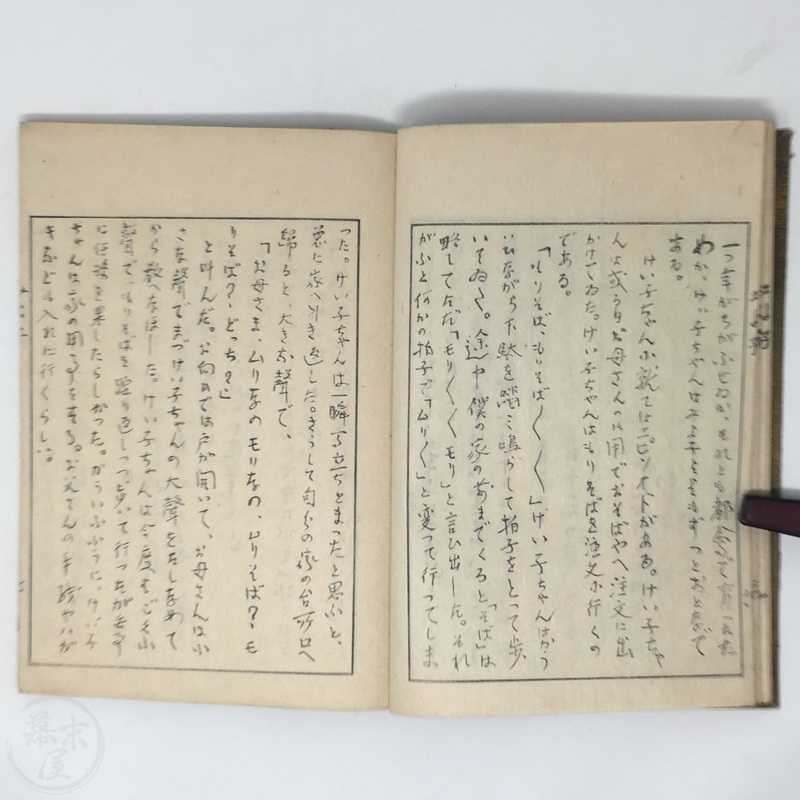 一つ年がちがふせゐか、それとも
わか、けい子ちゃんはみよ子をまかす つどおとなで
ある。
けい子ちゃんに就てはエピソオドがある。けい子ちゃ
んは或る日お母さんの用でおそばやへ注文に出
かけてゐた。けい子ちゃんはもりそばを注文に行くの
である。
「もりそば、もりそば〱〱」けい子ちゃんはかう
いひながら下駄を踏み鳴らして拍子をとって歩
いてゐた。途中僕の家の前までくると「そば」は
略してただ「モリ〱〱モリ」と言ひ出した。それ
がふと何かの拍子で「ムリ〱」と変って行ってしま
った。けい子ちゃんは一瞬間立ちとまったと思ふと、
急に家へ引き返した。さうして自分の家の台所口へ
帰ると、大きな聲で、
「お母さま、ムリなのモリなの、ムリそば?、モ
リそば?、どっち?」
と叫んだ。お向ひでは戸が開いて、お母さんは小
さな聲でまづけい子ちゃんの大聲をたしなめて
から教へなほした。けい子ちゃんは今度もごく小
聲で、もりそばを繰り返しつつ歩いて行ったが無事
に任務を果したらしかった。かういふふうに、けい子
ちゃんは家の用事をする。お父さんの手紙やハガ
キなども入れに行くらしい。
幕末屋